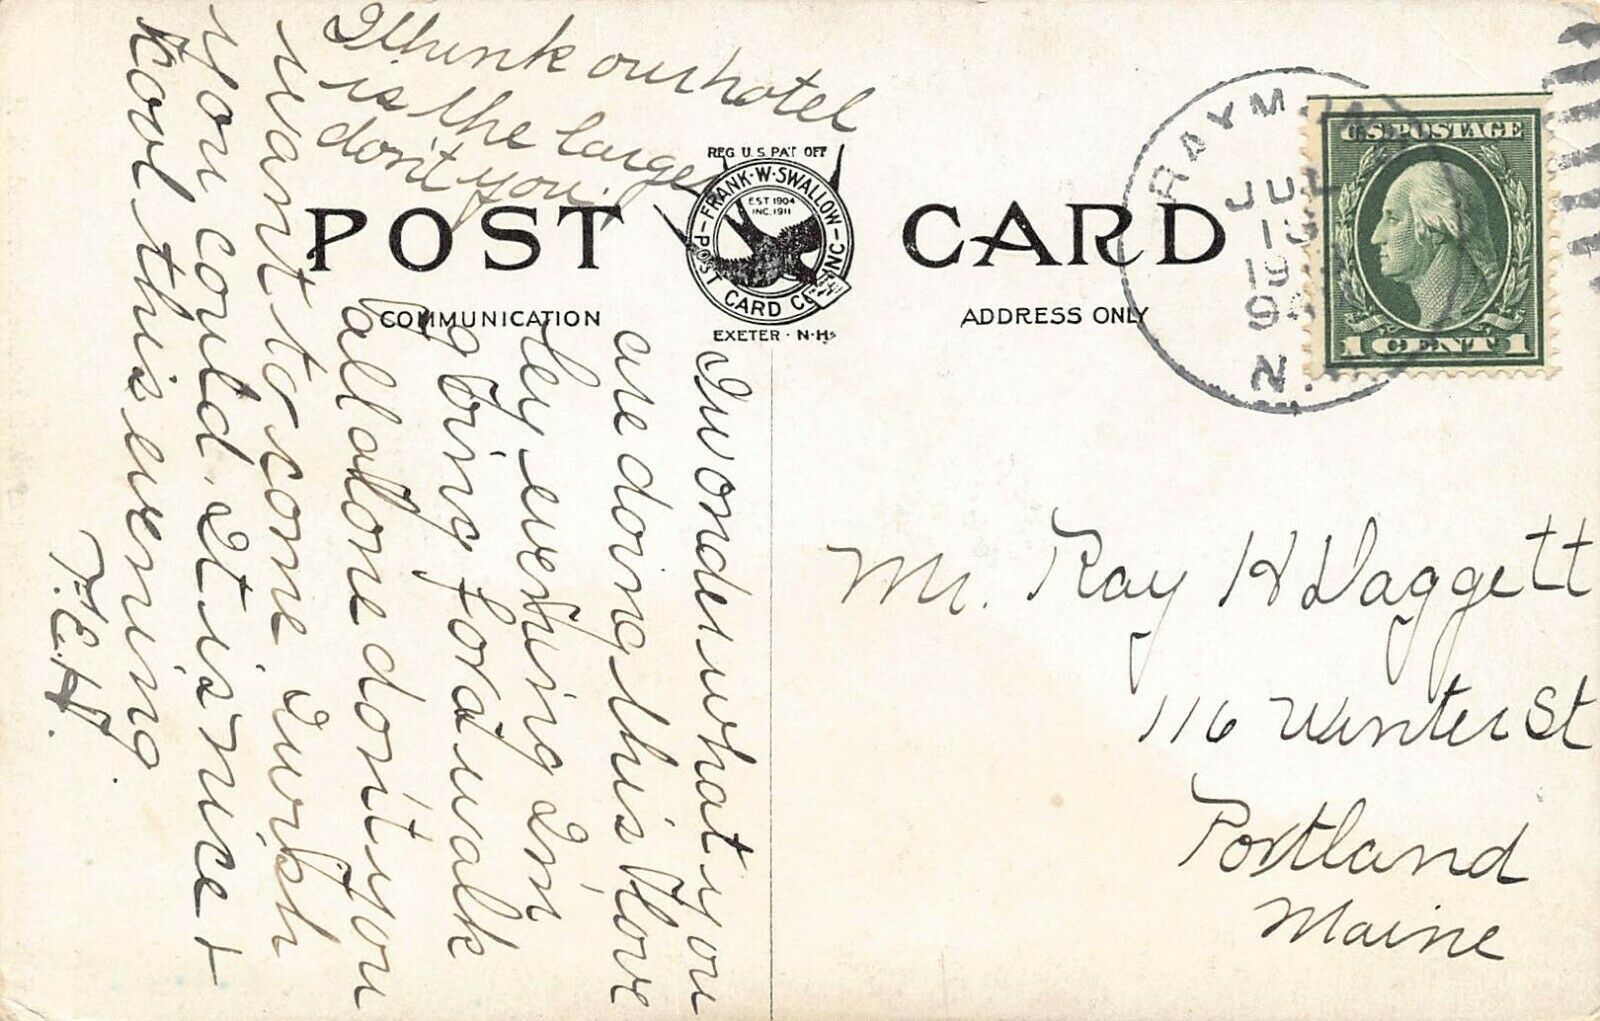 I think our hotel
is the large
don't you.
REG U.S PAT OFF
FRANK·W·SWALLOW
POST CARD CO INC
EST 1904
INC. 1911
EXETER·N·H
POST CARD
COMMUNICATION
ADDRESS ONLY
I wonder what you
are doing this love
ley evening I'm
going for a walk
all alone don't you
want to come I wish
you could. It is nice +
cool this evening.
F.E.H.
RAYM
JUL
19
N.
U.S. POSTAGE
1 CENT 1
Mr. Ray H Daggett
116 Winter St
Portland
Maine